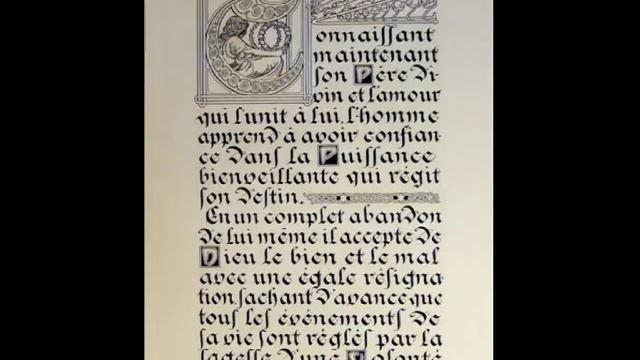 Connaissant
maintenant
son Père Di-
vin et l'amour
qui l'unit à lui, l'homme
apprend à avoir confian-
ce dans la Puissance
bienveillante qui régit
son destin.
En un complet abandon
de lui même il accepte de
Dieu le bien et le mal
avec une égale résigna-
tion, sachant d'avance que
tous les événements de
sa vie sont réglés par la
sagesse d'une Volonté